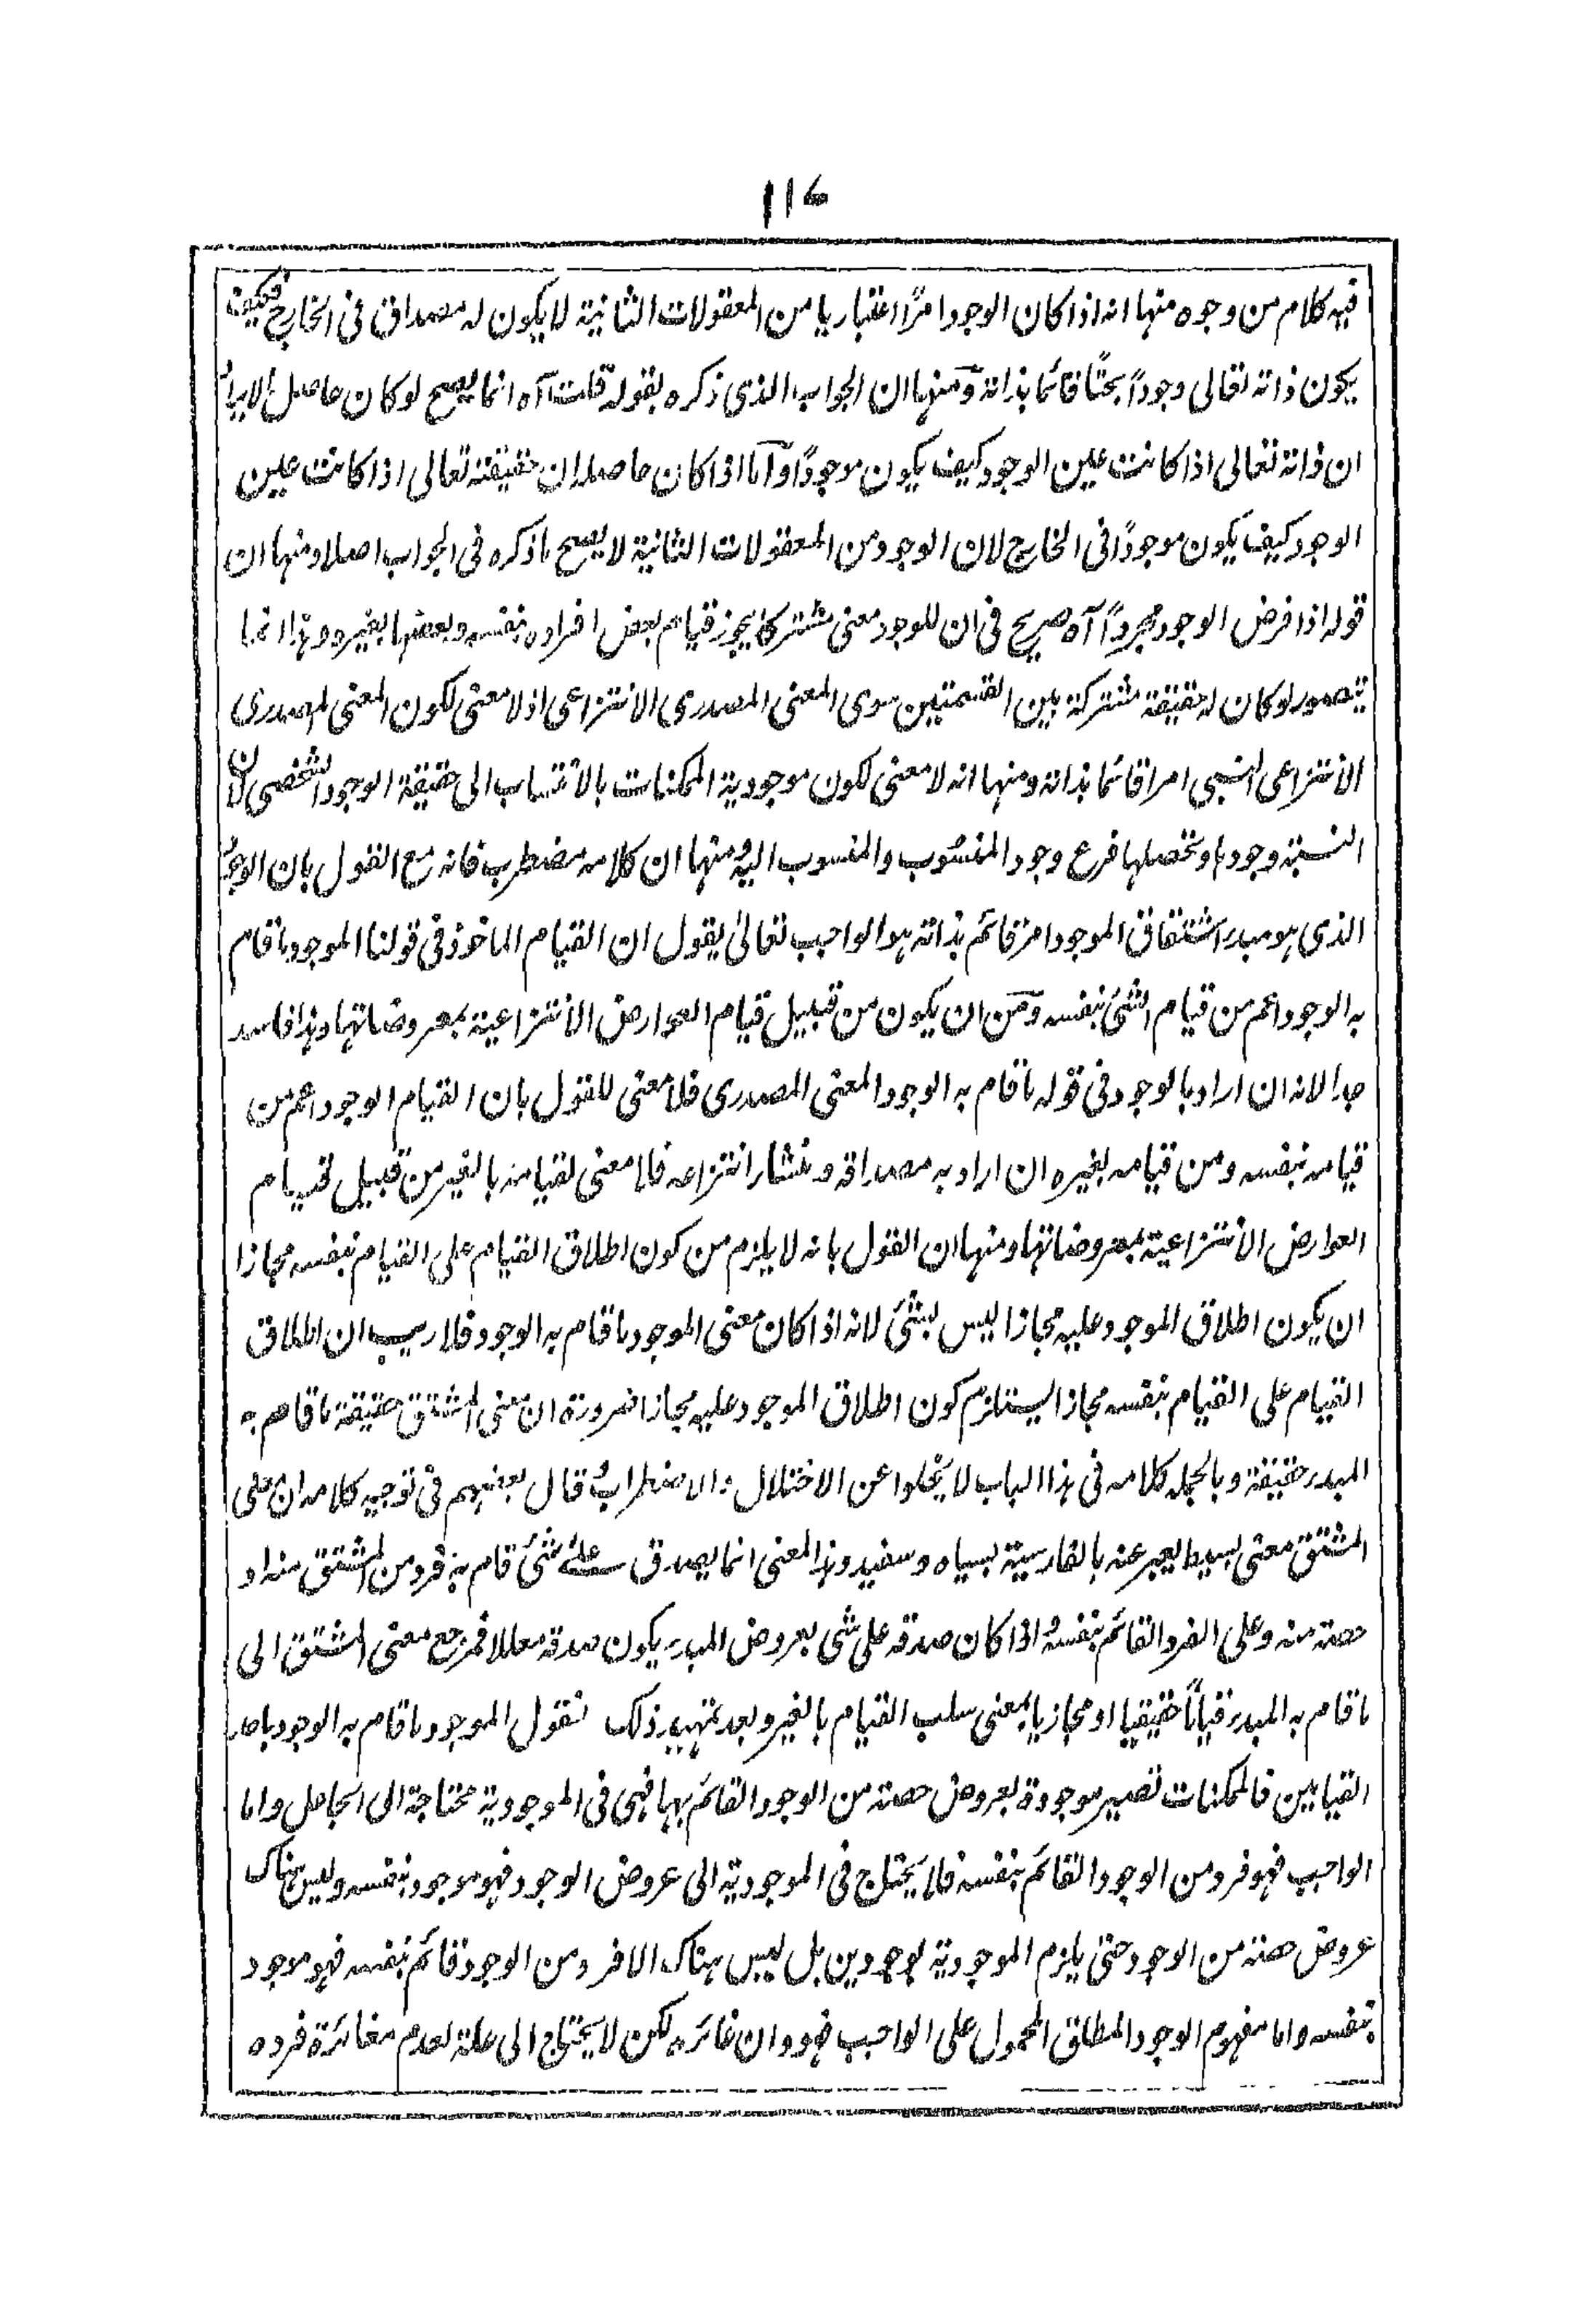 ۱۱۷
فيه كلام من وجوه منها انه اذا كان الوجود امرًا اعتباريا من المعقولات الثانية لا يكون له مصداق فى الخارج فكيف
يكون ذاته تعالى وجوداً بحتًا قائما بذاته ومنها ان الجواب الذى ذكره بقوله قلت آه انما يصح لو كان حاصل الايراد
ان ذاته تعالى اذا كانت عين الوجود كيف يكون موجودًا واما اذا كان حاصله ان حقيقته تعالى اذا كانت عين
الوجود كيف يكون موجودًا فى الخارج لان الوجود من المعقولات الثانية لا يصح ما ذكره فى الجواب اصلا ومنها ان
قوله اذا فرض الوجود مجرداً آه صريح فى ان للوجود معنى مشتركا يجوز قيام بعض افراده بنفسه وبعضها بغيره وهذا انما
يتصور لو كان له حقيقة مشتركة بين القسمتين سوى المعنى المصدرى الانتزاعى اذ لا معنى لكون المعنى المصدرى
الانتزاعى النسبى امرا قائما بذاته ومنها انه لا معنى لكون موجودية الممكنات بالانتساب الى حقيقة الوجود الشخصى لان
النسبة وجودها وتحصلها فرع وجود المنسوب والمنسوب اليه ومنها ان كلامه مضطرب فانه مع القول بان الوجود
الذى هو مبدء اشتقاق الموجود امر قائم بذاته هو الواجب تعالى يقول ان القيام الماخوذ فى قولنا الموجود ما قام
به الوجود اعم من قيام الشئ بنفسه ومن ان يكون من قبيل قيام العوارض الانتزاعية بمعروضاتها وهذا فاسد
جدا لانه ان اراد بالوجود فى قوله ما قام به الوجود المعنى المصدرى فلا معنى للقول بان القيام الوجود اعم من
قيامه بنفسه ومن قيامه بغيره ان اراد به مصداقه ومنشا انتزاعه فلا معنى لقيامه بالغير من قبيل قيام
العوارض الانتزاعية بمعروضاتها ومنها ان القول بانه لا يلزم من كون اطلاق القيام على القيام بنفسه مجازا
ان يكون اطلاق الموجود عليه مجازا ليس بشئ لانه اذا كان معنى الموجود ما قام به الوجود فلا ريب ان اطلاق
القيام على القيام بنفسه مجازا يستلزم كون اطلاق الموجود عليه مجازا ضرورة ان معنى المشتق حقيقة ما قام به
المبدء حقيقة وبالجملة كلامه فى هذا الباب لا يخلوا عن الاختلال والاضطراب وقال بعضهم فى توجيه كلامه ان معنى
المشتق معنى بسيط يعبر عنه بالفارسية بسياه وسفيد وهذا المعنى انما يصدق على شئ قام به فرد من المشتق منه او
حصته منه وعلى الفرد القائم بنفسه واذا كان صدقه على شى بعروض المبدء يكون صدقه معللا فمرجع معنى المشتق الى
ما قام به المبدء قياماً حقيقيا او مجازيا بمعنى سلب القيام بالغير وبعد تمهيد ذلك نقول الموجود ما قام به الوجود باحد
القيامين فالممكنات تصير موجودة بعروض حصته من الوجود القائم بها فهى فى الموجودية محتاجة الى الجاعل واما
الواجب فهو فرد من الوجود القائم بنفسه فلا يحتاج فى الموجودية الى عروض الوجود فهو موجود بنفسه وليس هناك
عروض حصته من الوجود حتى يلزم الموجودية لوجودين بل ليس هناك الا فرد من الوجود قائم بنفسه فهو موجود
بنفسه واما مفهوم الوجود المطلق المحمول على الواجب فهو وان غائره لكن لا يحتاج الى علة لعدم مغائرة فرده